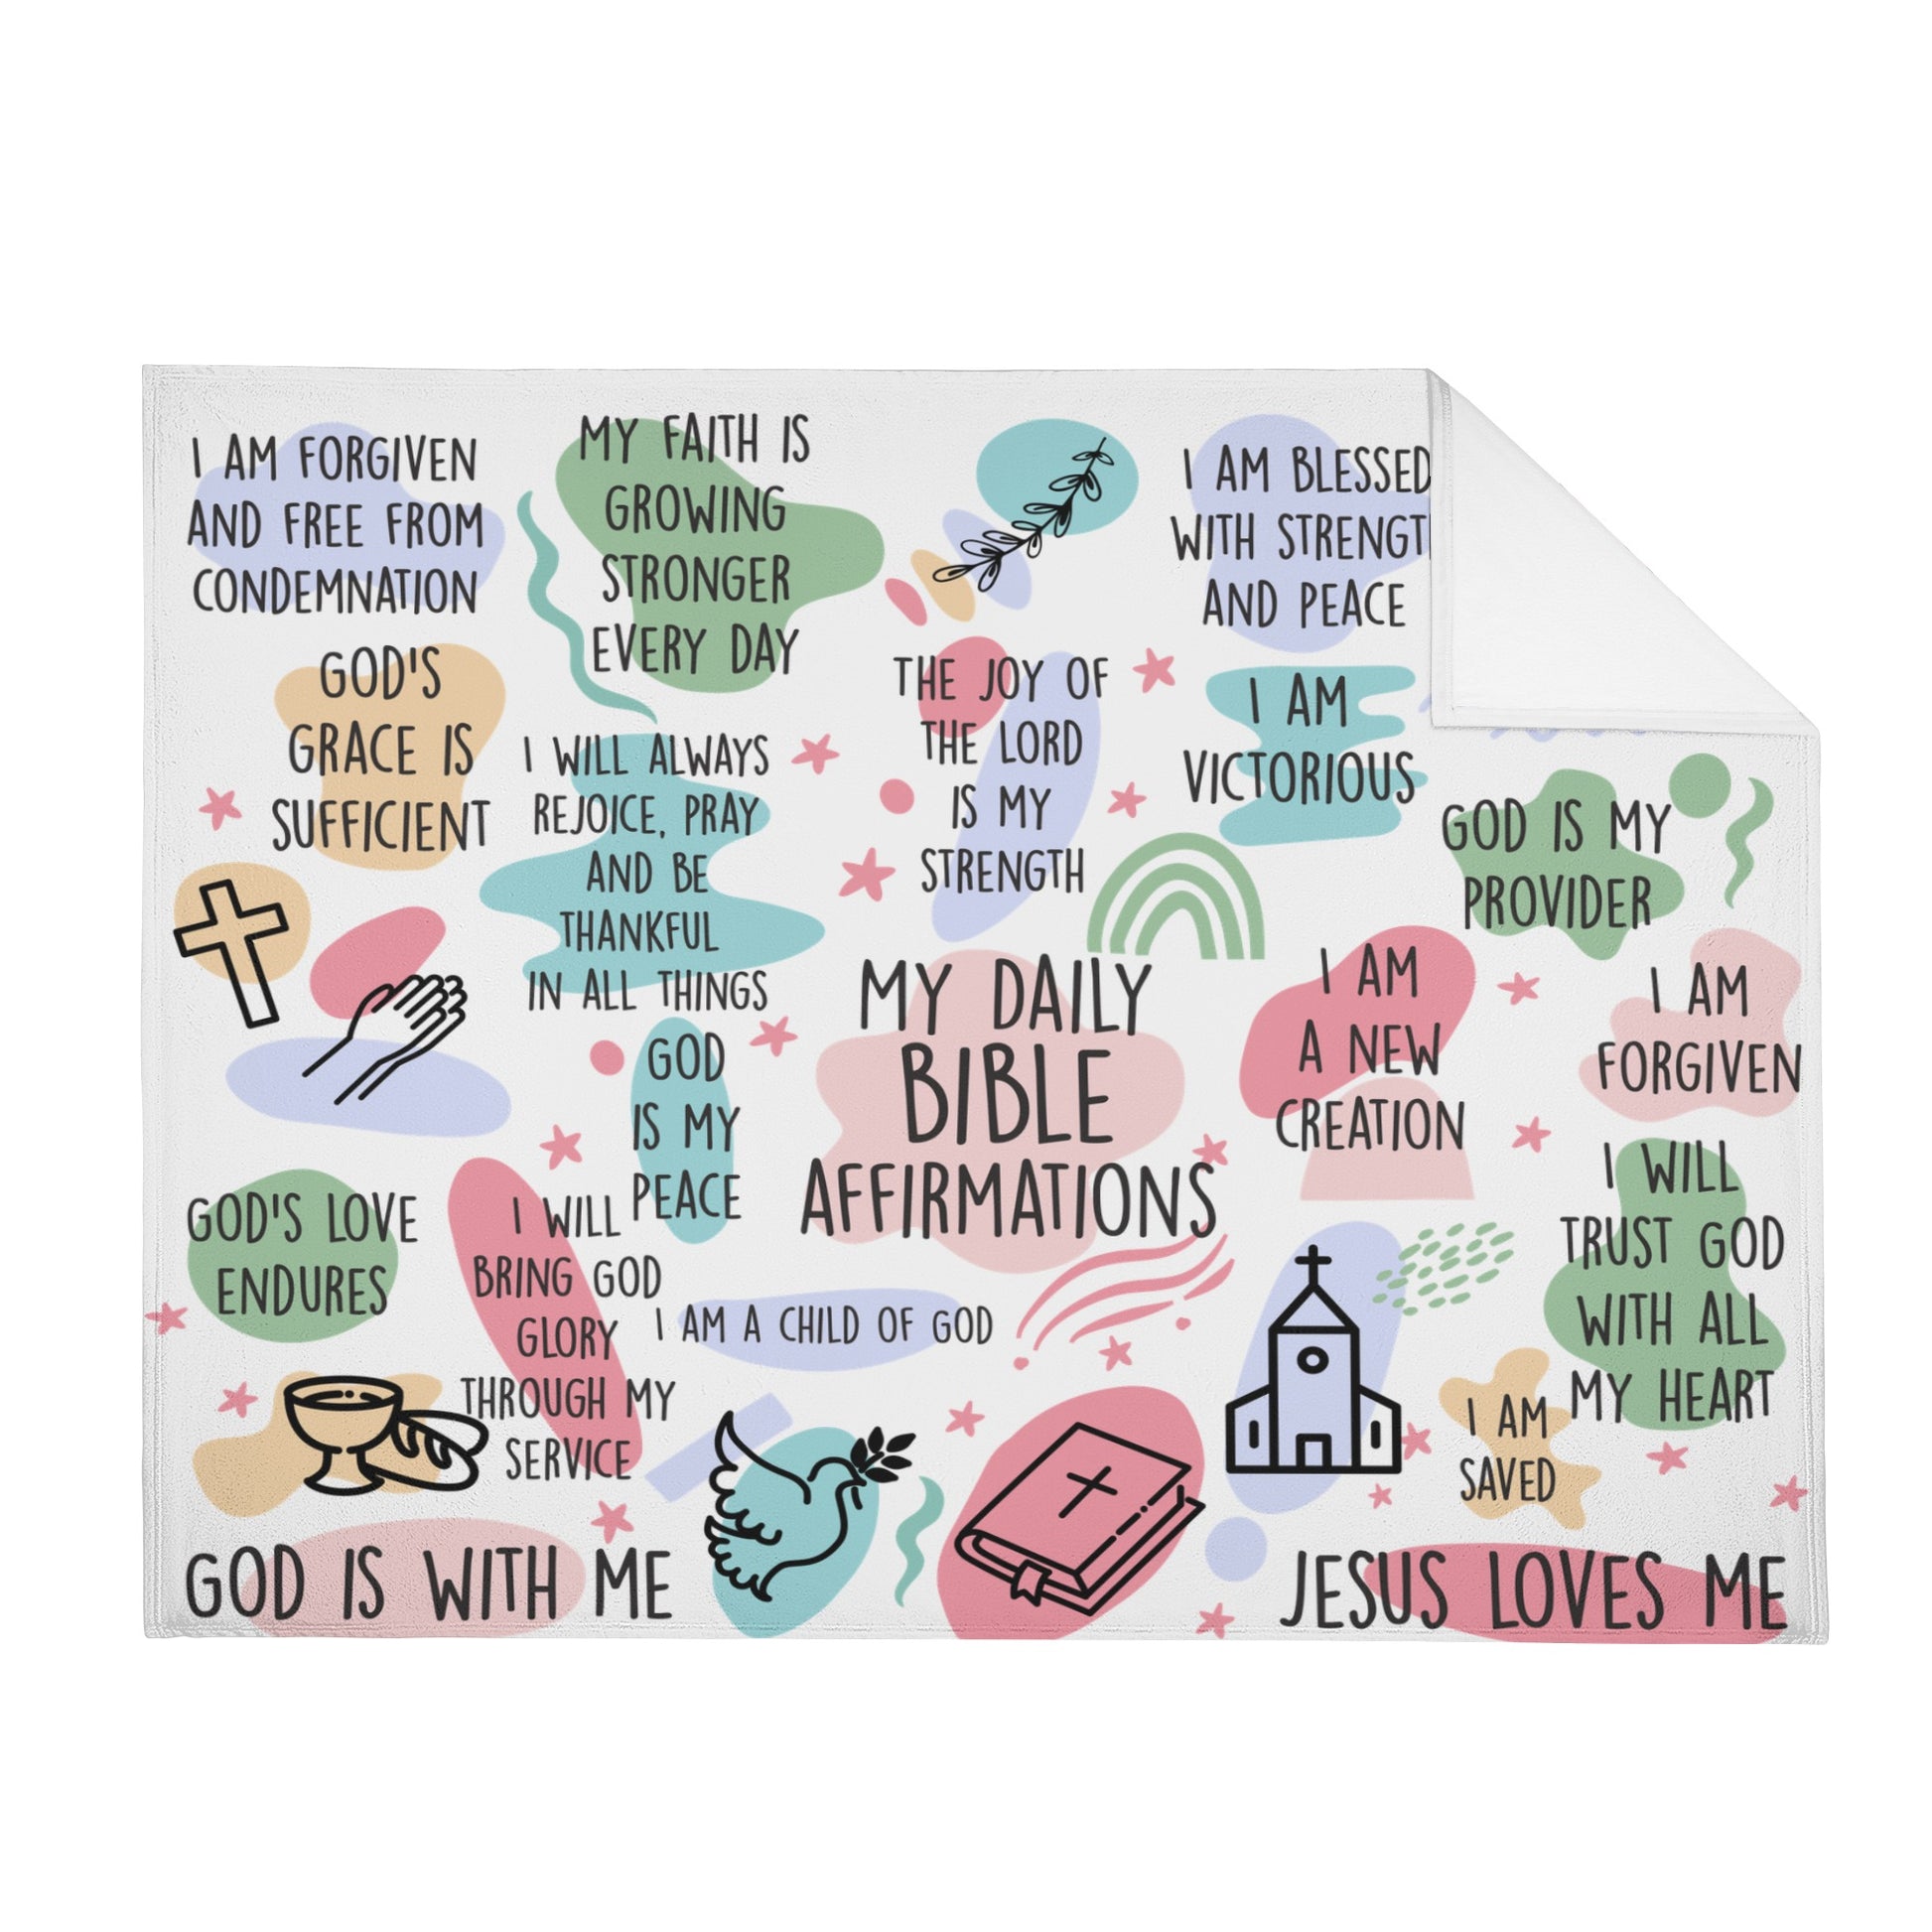 I AM FORGIVEN
AND FREE FROM
CONDEMNATION
MY FAITH IS
GROWING
STRONGER
EVERY DAY
I AM BLESSED
WITH STRENGT
AND PEACE
GOD'S
GRACE IS
SUFFICIENT
I WILL ALWAYS
REJOICE, PRAY
AND BE
THANKFUL
IN ALL THINGS
THE JOY OF
THE LORD
IS MY
STRENGTH
I AM
VICTORIOUS
GOD IS MY
PROVIDER
MY DAILY
BIBLE
AFFIRMATIONS
I AM
A NEW
CREATION
I AM
FORGIVEN
GOD
IS MY
PEACE
GOD'S LOVE
ENDURES
I WILL
BRING GOD
GLORY
THROUGH MY
SERVICE
I AM A CHILD OF GOD
I WILL
TRUST GOD
WITH ALL
MY HEART
I AM
SAVED
GOD IS WITH ME
JESUS LOVES ME